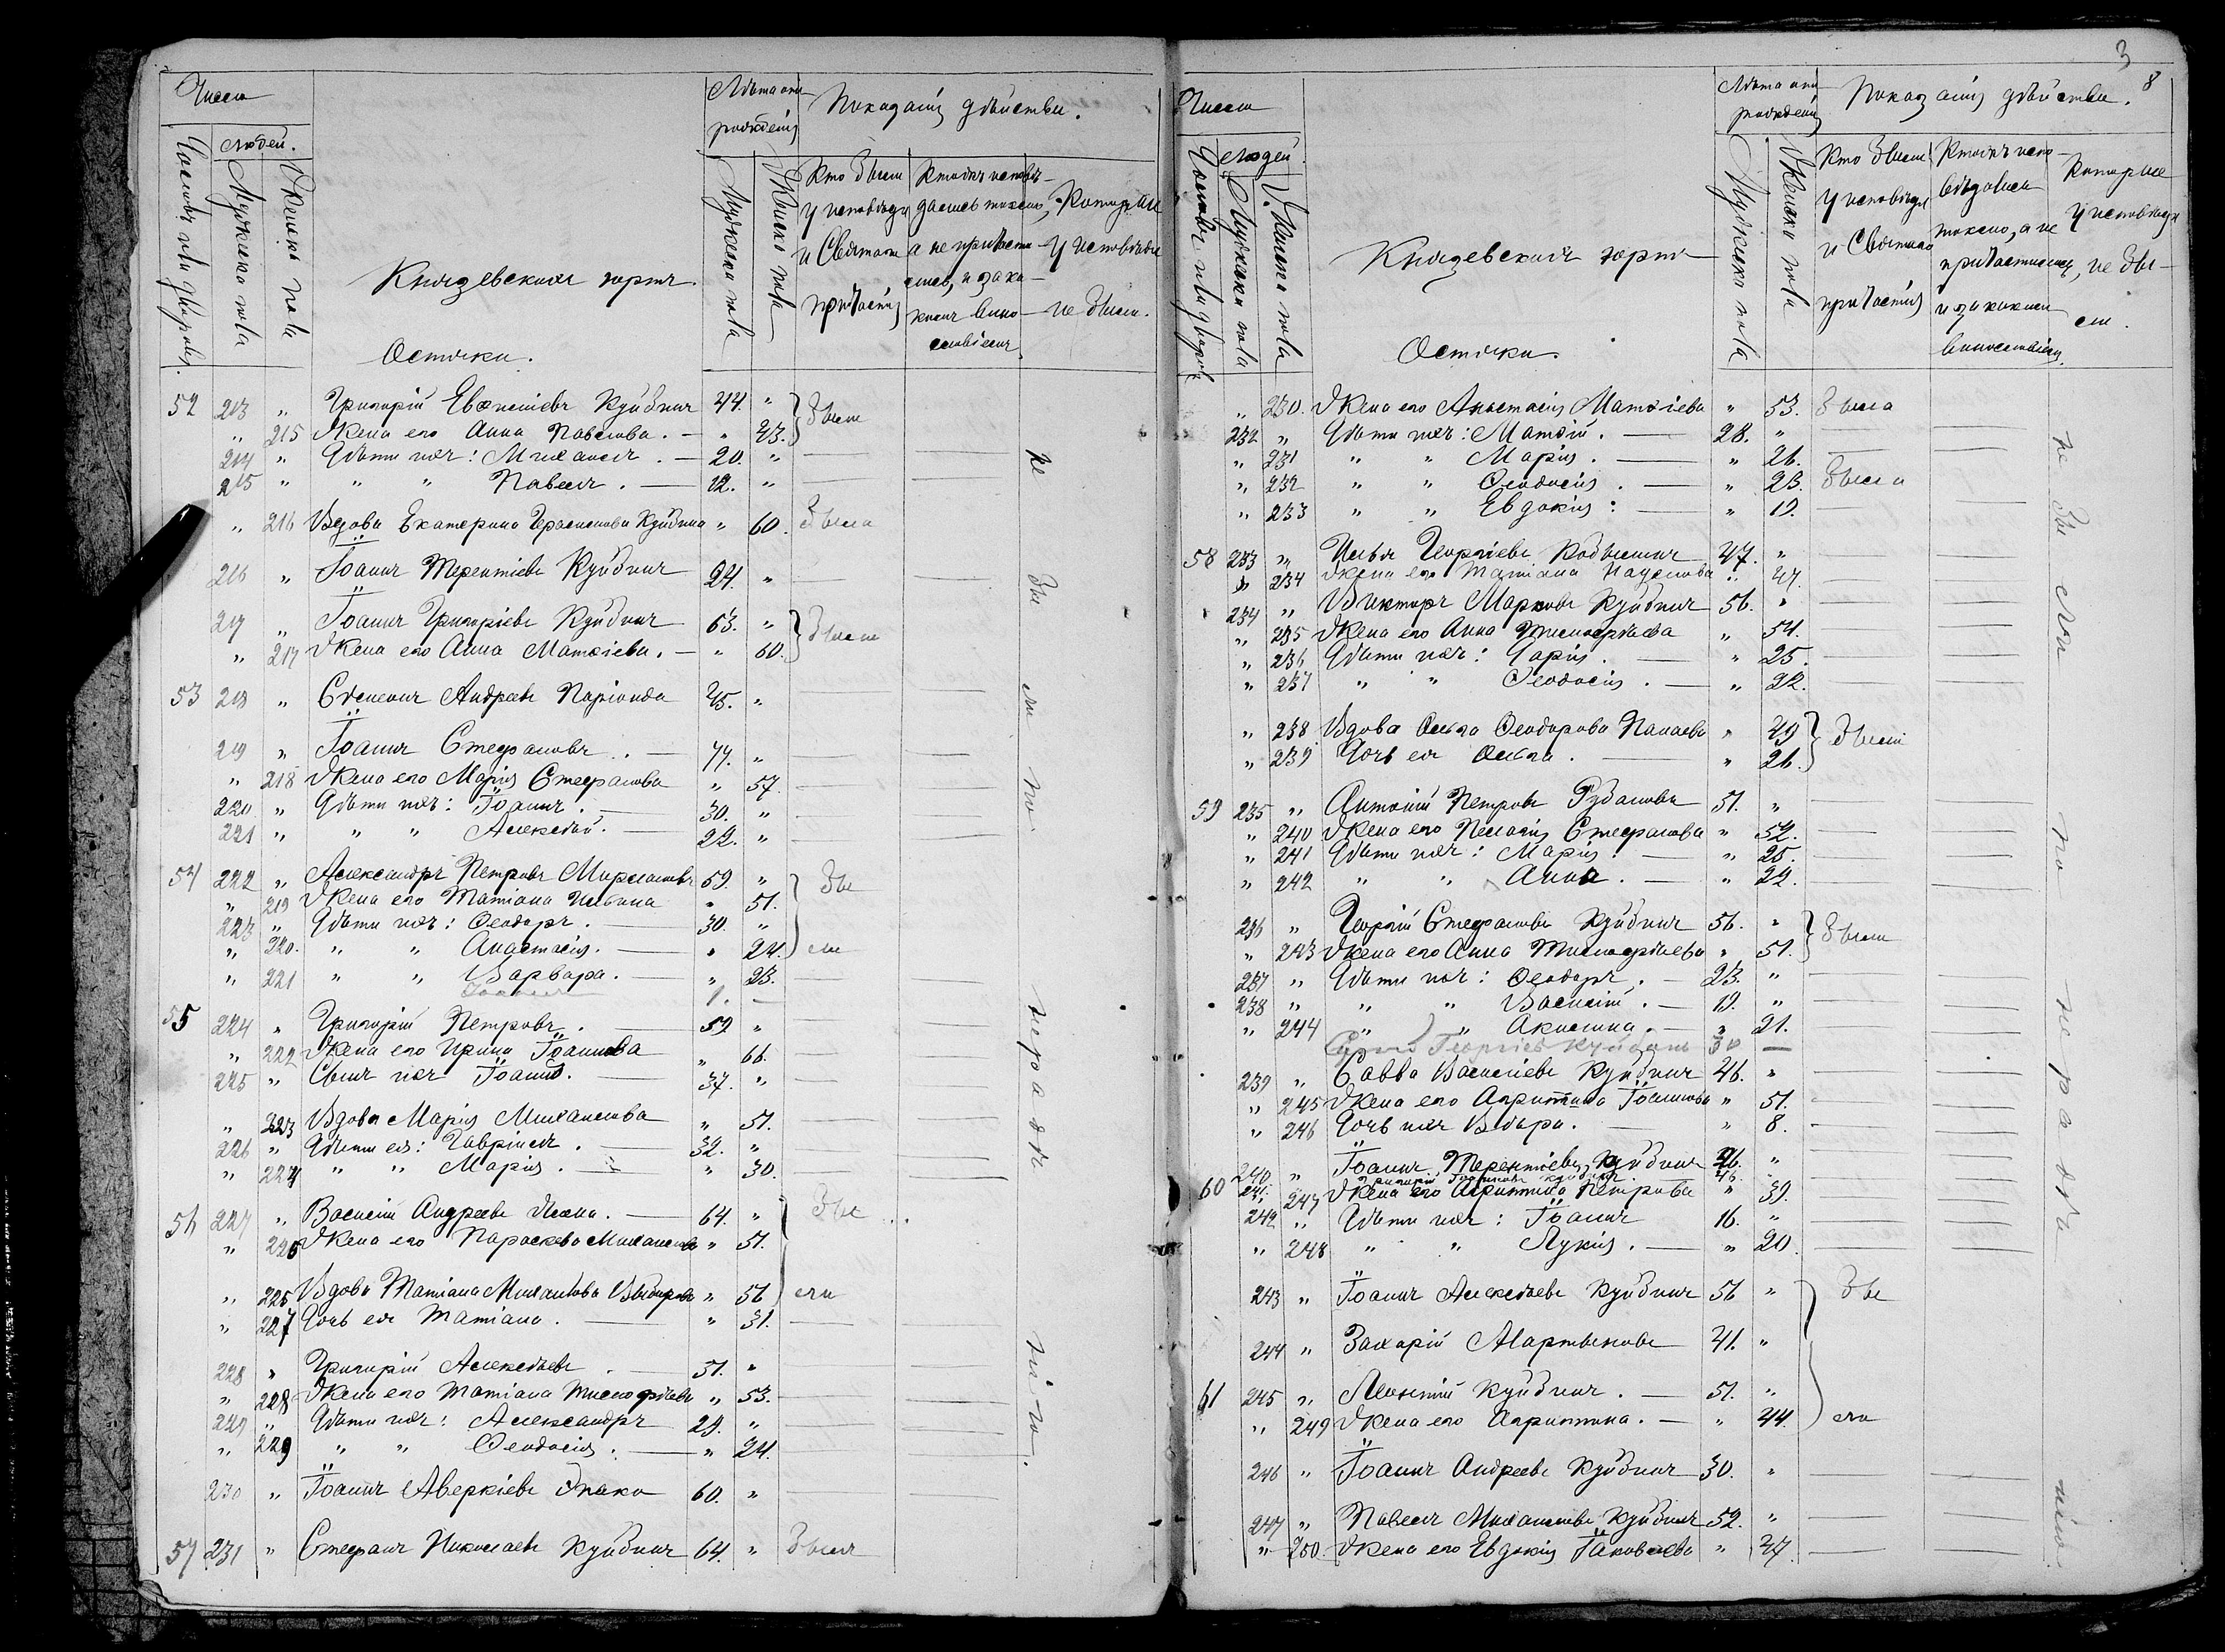 Числа
людей.
Лѣта отъ рожденія
Показаніи дѣйства.
Домовъ или дворовъ.
Мужеска пола
Женска пола
Князевскихъ юртъ.
Остяки.
Мужеска пола
Женска пола
Кто были у исповѣди и Святаго причастія
Кто исповѣдались токмо, а не причастились, и за какимъ винословіемъ
Которые у исповѣди не были.
52 213 " Григорій Евѳиміевъ Куйбинъ 44. " были
" 215 Жена его Анна Павлова. — " 43.
214 " Дѣти ихъ: Михаилъ. — 20. " —
215 " " " Павелъ. — 12. " —
" 216 Вдова Екатерина Герасимова Куйбина " 60. Была
216 " Іоаннъ Терентіевъ Куйбинъ 24. " —
217 " Іоаннъ Григоріевъ Куйбинъ 63. " были
" 217 Жена его Анна Матѳіева. — " 60.
53 218 " Стефанъ Андреевъ 45. "
219 " Іоаннъ Стефановъ. — 77. "
" 218 Жена его Марія Стефанова " 57. —
220 " Дѣти ихъ: Іоаннъ. — 30. " —
221 " " " Алексѣй. — 22. " —
54 222 " Александръ Петровъ 59. " бы
" 219 Жена его Татіана Ильина " 51.
223 " Дѣти ихъ: Ѳеодоръ. — 30. "
" 220. " " Анастасія. — " 24. ли
" 221 " " Варвара. — " 23. —
1. —
55 224 " Григорій Петровъ. — 59 " —
" 222 Жена его Ирина Іоаннова " 66. —
225 " Сынъ ихъ Іоаннъ. — 37. " —
" 223 Вдова Марія Михаилова " 51. —
226 " Дѣти ея: Гавріилъ. — 32. " —
" 224 " " Марія. — " 30. —
56 227 " Василій Андреевъ 64. " Бы
" 226 Жена его Параскева Михаилова " 51.
" 225 Вдова Татіана Михаилова " 56 ли
" 227 Дочь ея Татіана. — " 31. —
228 " Григорій Алексѣевъ — 51. "
" 228 Жена его Татіана Тимоѳѣева " 53. —
229 " Дѣти ихъ: Александръ 29. " —
" 229 " " Ѳеодосія. — " 24. —
230 " Іоаннъ Аверкіевъ 60. " —
57 231 " Стефанъ Николаевъ Куйбинъ 64. " Былъ
не бы ли по нерадѣнію.
3
8
Числа
людей.
Лѣта отъ рожденія
Показаніи дѣйства.
Домовъ или дворовъ
Мужеска пола
Женска пола
Князевскихъ юртъ
Остяки.
Мужеска пола
Женска пола
Кто были у исповѣди и Святаго причастія
Кто исповѣдались токмо, а не причастились, и за какимъ винословіемъ.
Которые у исповѣди не были.
" 230. Жена его Анастасія Матѳіева " 53. была
232 " Дѣти ихъ: Матѳій. — 28. " —
" 231 " " Марія. — " 26. —
" 232 " " Ѳеодосія. — " 23. была
" 233 " " Евдокія: — " 19. —
58 233 " Илья Георгіевъ 47. " —
" 234 Жена его Татіана " 47. —
234 " Викторъ Марковъ Куйбинъ 56. " —
" 235 Жена его Анна Тимоѳѣева " 54. —
" 236 Дѣти ихъ: Дарія. — " 25. —
" 237 " " Ѳеодосія. — " 22. —
" 238 Вдова Ольга Ѳеодорова Панаева " 49 были
" 239 Дочь ея Ольга. — " 26.
59 235 " Антоній Петровъ 51. " —
" 240 Жена его Пелагія Стефанова " 52. —
" 241 Дѣти ихъ: Марія. — " 25. —
" 242 " " Анна. — " 22. —
236 " Георгій Стефановъ Куйбинъ 56. " Были
" 243 Жена его Анна Тимоѳѣева " 51.
237 " Дѣти ихъ: Ѳеодоръ. — 23. " —
238 " " " Василій. — 19. " —
" 244 " " Акилина. — " 21. —
Георгіевъ Куйбинъ 30 —
239 " Савва Василіевъ Куйбинъ 46. " —
" 245 Жена его Агриппина Іоаннова " 51. —
" 246 Дочь ихъ Вѣра. — " 8. —
240 " Іоаннъ Терентіевъ Куйбинъ 26. " —
60 241 " Григорій Іоанновъ Куйбинъ 46. "
" 247 Жена его Агриппина Петрова " 39. —
242 " Дѣти ихъ: Іоаннъ 16. " —
" 248 " " Лукія. — " 20. —
243 " Іоаннъ Алексѣевъ Куйбинъ 56 " бы
244 " Захарій Мартыновъ 41. "
61 245 " Леонтій Куйбинъ. — 51. "
" 249 Жена его Агриппина. — " 44. ли
246 " Іоаннъ Андреевъ Куйбинъ 30. " —
247 " Павелъ Михаиловъ Куйбинъ 52. " —
" 250. Жена его Евдокія Іаковлева " 47. —
не бы ли по нерадѣнію.